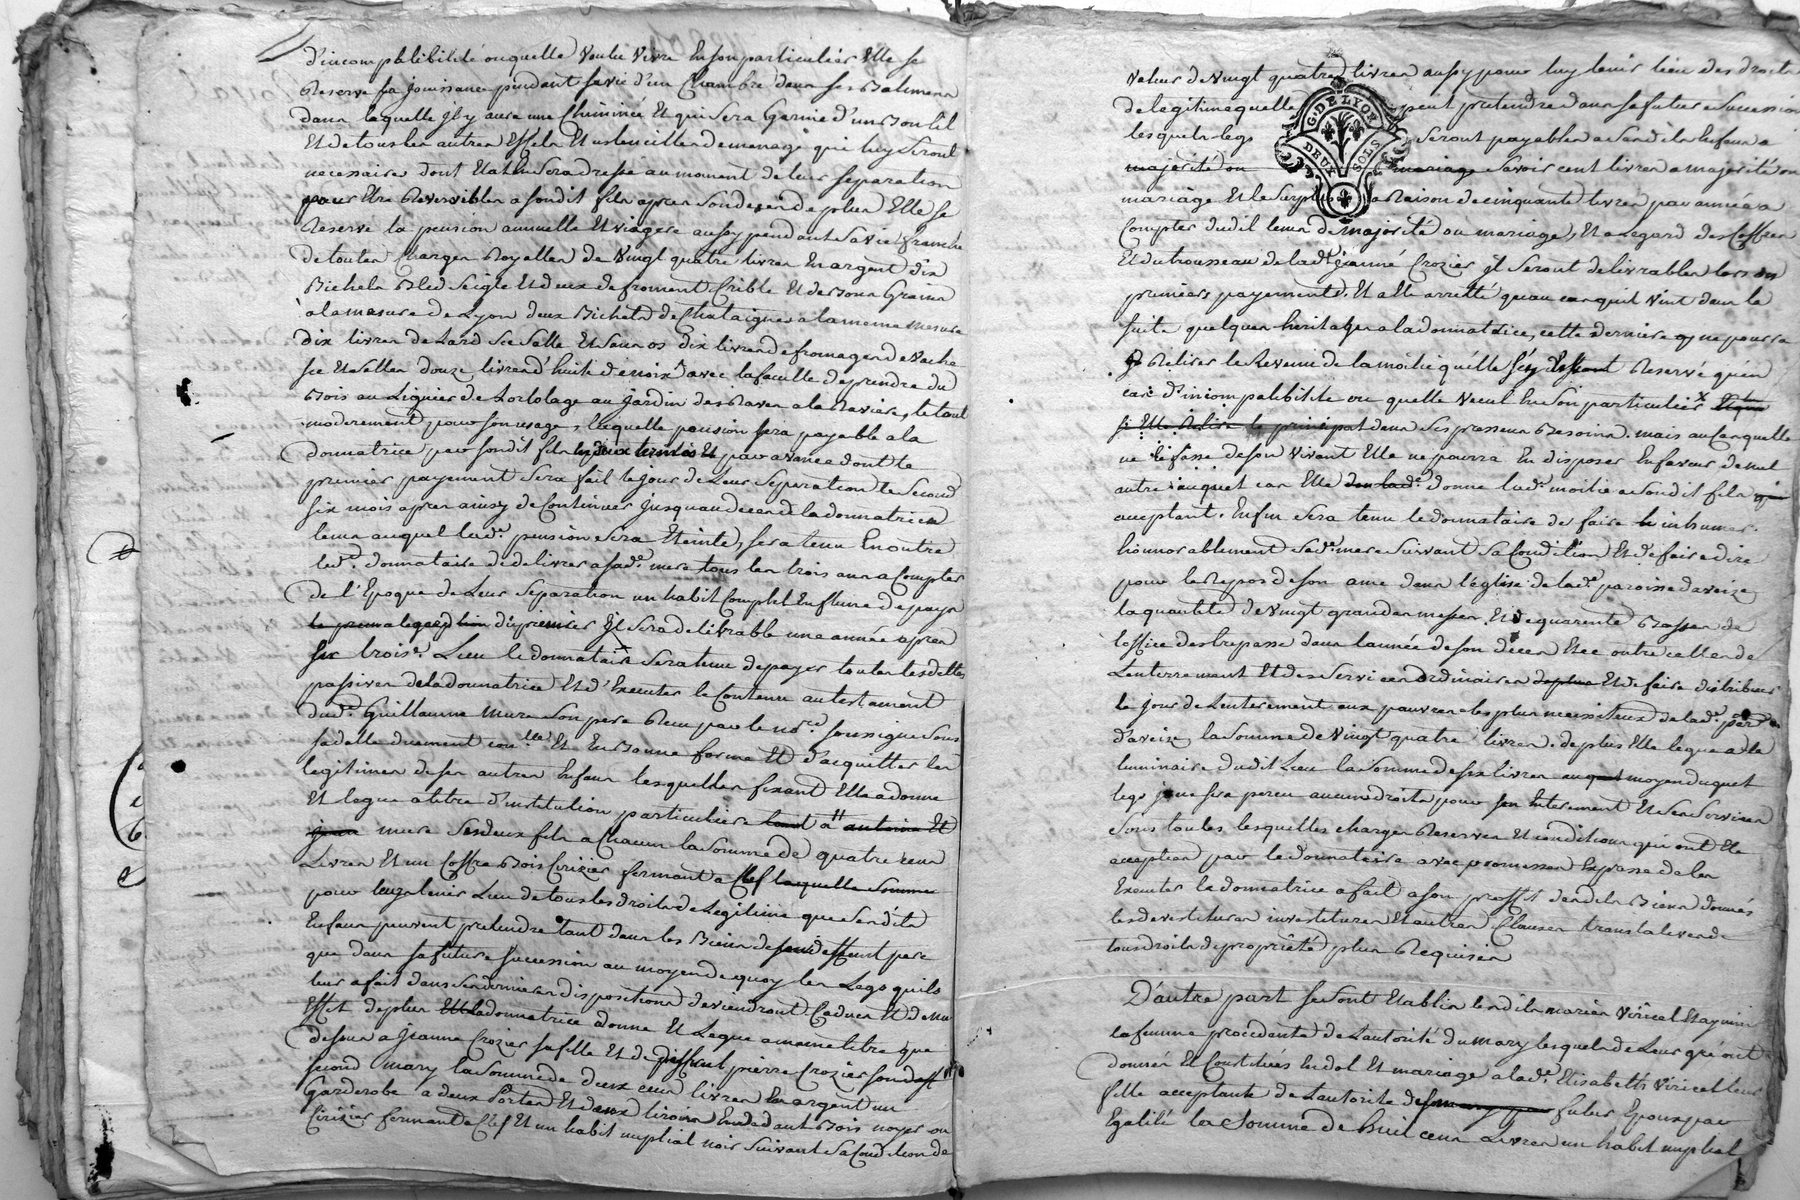 d'incompatibilité ou quelle voulu vivre en son particulier Elle se
Reserve la jouissance pendant sa vie d'un Chambre dans ses Batimens
dans laquelle il y aura une Cheminée Et qui sera Garnie d'un Bon lit
Et de tous les autres Effets Et ustencilles de menage qui luy seront
necessaires dont Etat sera dressé au moment de leur separation
pour Etre Reversibles a sondit fils apres son deces de plus Elle se
Reserve la pension annuelle Et viagere aussy pendant sa vie franche
de toutes Charges Royalles de vingt quatre livres En argent dix
Bichets Bled seigle Et deux de froment Crible Et de Bons Grains
à la mesure de Lyon deux Bichets de Chataignes a la meme mesure
dix livres de Lard sec salle Et sans os dix livres de fromages de vache
sec Et salles douze livres d'huile de noix avec la faculté de prendre du
Bois au Lignier de Lortolage au jardin des Raves a la Raviere, le tout
moderement pour son usage, laquelle pension sera payable a la
donnatrice par sondit fils en deux termes Et par avance dont le
premier payement sera fait le jour de Leur separation le second
six mois apres ainsy de Continuer jusquau deces de la donnatrice
tems auquel lad.e pension sera Eteinte, sera tenu En outre
led.t donnataire de delivrer a sad.e mere tous les trois ans a Compter
de l'Epoque de Leur separation un habit Complet En
d'ipremier Il sera delivrable une année apres
Lieu le donnataire sera tenu de payer toutes les dettes
passives de la donnatrice Et d'Executer le Contenu au testament
dud.t Guillaume mure son pere Recu par le no.re soussigné sous
sa datte duement con.llé Et En Bonne forme Et d'acquitter les
legitimes de ses autres Enfans lesquelles fixant Elle a donne
Et legue a titre d'institution particuliere a antoine Et
mure ses deux fils a Chacun la somme de quatre cens
Livres Et un Coffre Bois Cerizier fermant a Clef laquelle somme
pour leur tenir Lieu de tous les droits de Legitime que sesdits
Enfans peuvent pretendre tant dans les Biens de feu deffunt pere
que dans sa future succession au moyen de quoy les Legs quils
leur a fait dans ses dernieres dispositions deviendront Caducs Et de nul
Effet de plus la donnatrice donne Et Legue a meme titre que
dessus a jeanne Crozier sa fille Et de deffunt pierre Crozier son
second mary la somme de deux cens livres En argent un
Garderobe a deux Portes Et deux tiroirs Bois noyer ou
Cirizier fermant a Clef Et un habit nuptial noir suivant sa Condition de
valeur de vingt quatre livres aussy pour luy tenir lieu des droits
de legitime quelle peut pretendre dans sa future succession
G. DE LYON
DEUX SOLS
lesquels legs seront payables a sesdits Enfans a
majorité ou mariage savoir cent livres a majorité ou
mariage Et le surplus a Raison de cinquante livres par année a
Compter dudit tems de majorité ou mariage, Et a Legard des Coffres
Et du trousseau de lad.e jeanne Crozier il seront delivrables lors des
premiers payements. Et a Ete arretté quau cas quil vint dans la
suite quelques heritages a la donnatrice, cette derniere ne pourra
Retirer le Revenu de la moitié quelle s'est Reservé qu'en
cas d'incompatibilité ou quelle vecut En son particulier
si Elle Retire le principal dans ses pressens Besoins. mais au Cas quelle
ne le fasse de son vivant Elle ne pourra En disposer En faveur de nul
autre auquel cas Elle donne lad.e moitié a sondit fils
acceptant. Enfin sera tenu le donnataire de faire inhumer
honnorablement sad.e mere suivant sa Condition Et de faire dire
pour le Repos de son ame dans l'eglise de lad.e paroisse d'aveize
la quantité de vingt grandes messes. Et de quarente Basses de
loffice des trepassé dans l'année de son deces Et ce outre celles de
Lenterrement Et des services ordinaires Et de faire distribuer
le jour de Lenterement aux pauvres les plus necessiteux de lad.e par.se
d'aveize la somme de vingt quatre livres. de plus Elle legue a la
luminaire dudit Lieu la somme de six livres au moyen duquel
legs il ne sera percu aucuns droits pour son Enterement Et ses services
sous toutes lesquelles charges Reserves Et conditions qui ont Ete
acceptees par le donnataire avec promesses Expresse de les
Executer la donnatrice a fait a son proffit desdits Biens donnés
les devestitures investitures Et autres Clauses translatives de
tous droits de propriété plus Requises
D'autre part se sont Etablis lesdits mariés viricel Et aymin
la femme procedante de Lautorité du mary lesquels de Leur gré ont
donnés Et Constitués En dot Et mariage a lad.e Elisabeth viricel leur
fille acceptante de Lautorité de futur Epoux par
Egalité la somme de huit cens Livres un habit nuptial